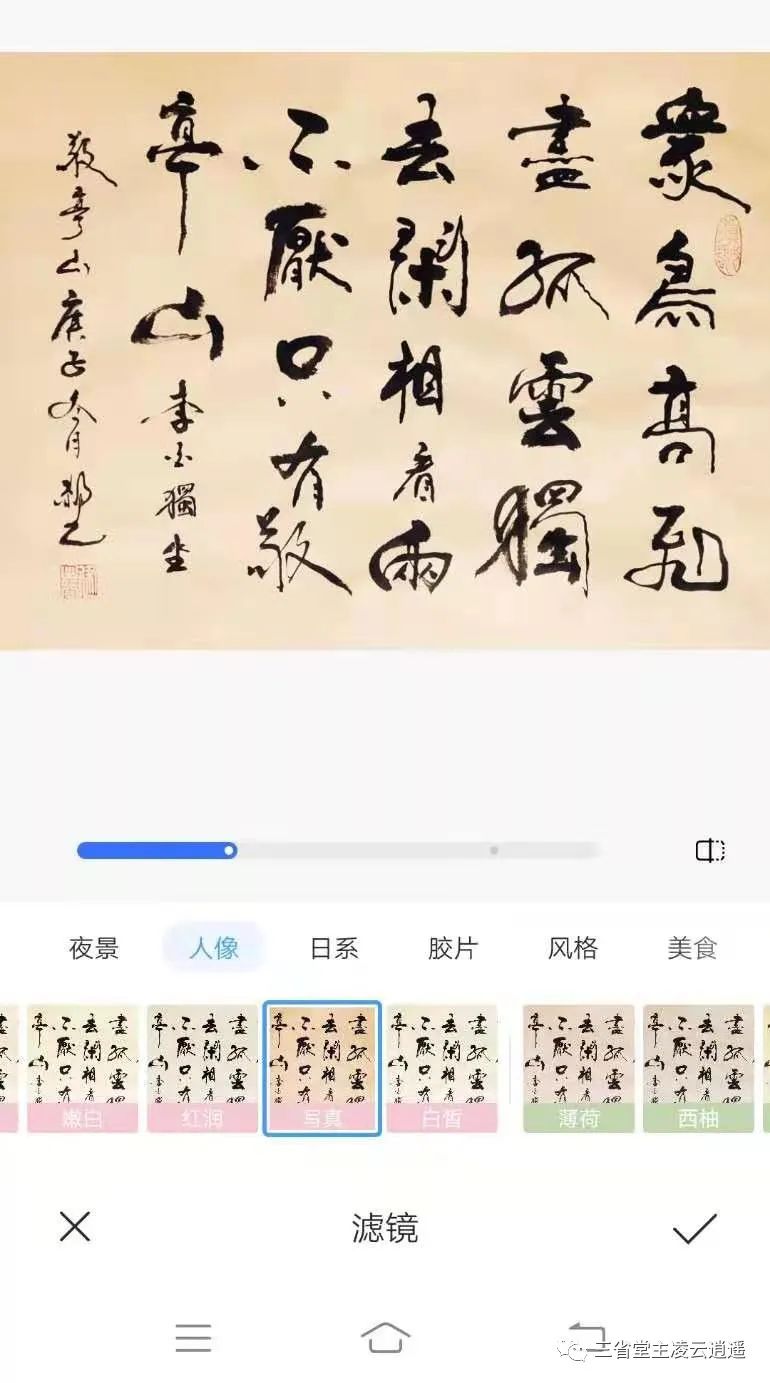 衆鳥髙飛
盡孤雲獨
去閑相看兩
不厭只有敬
亭山李白獨坐
敬亭山庚子冬月
夜景 人像 日系 胶片 风格 美食
嫩白 红润 写真 白皙 薄荷 西柚
滤镜
三省堂主凌云逍遥